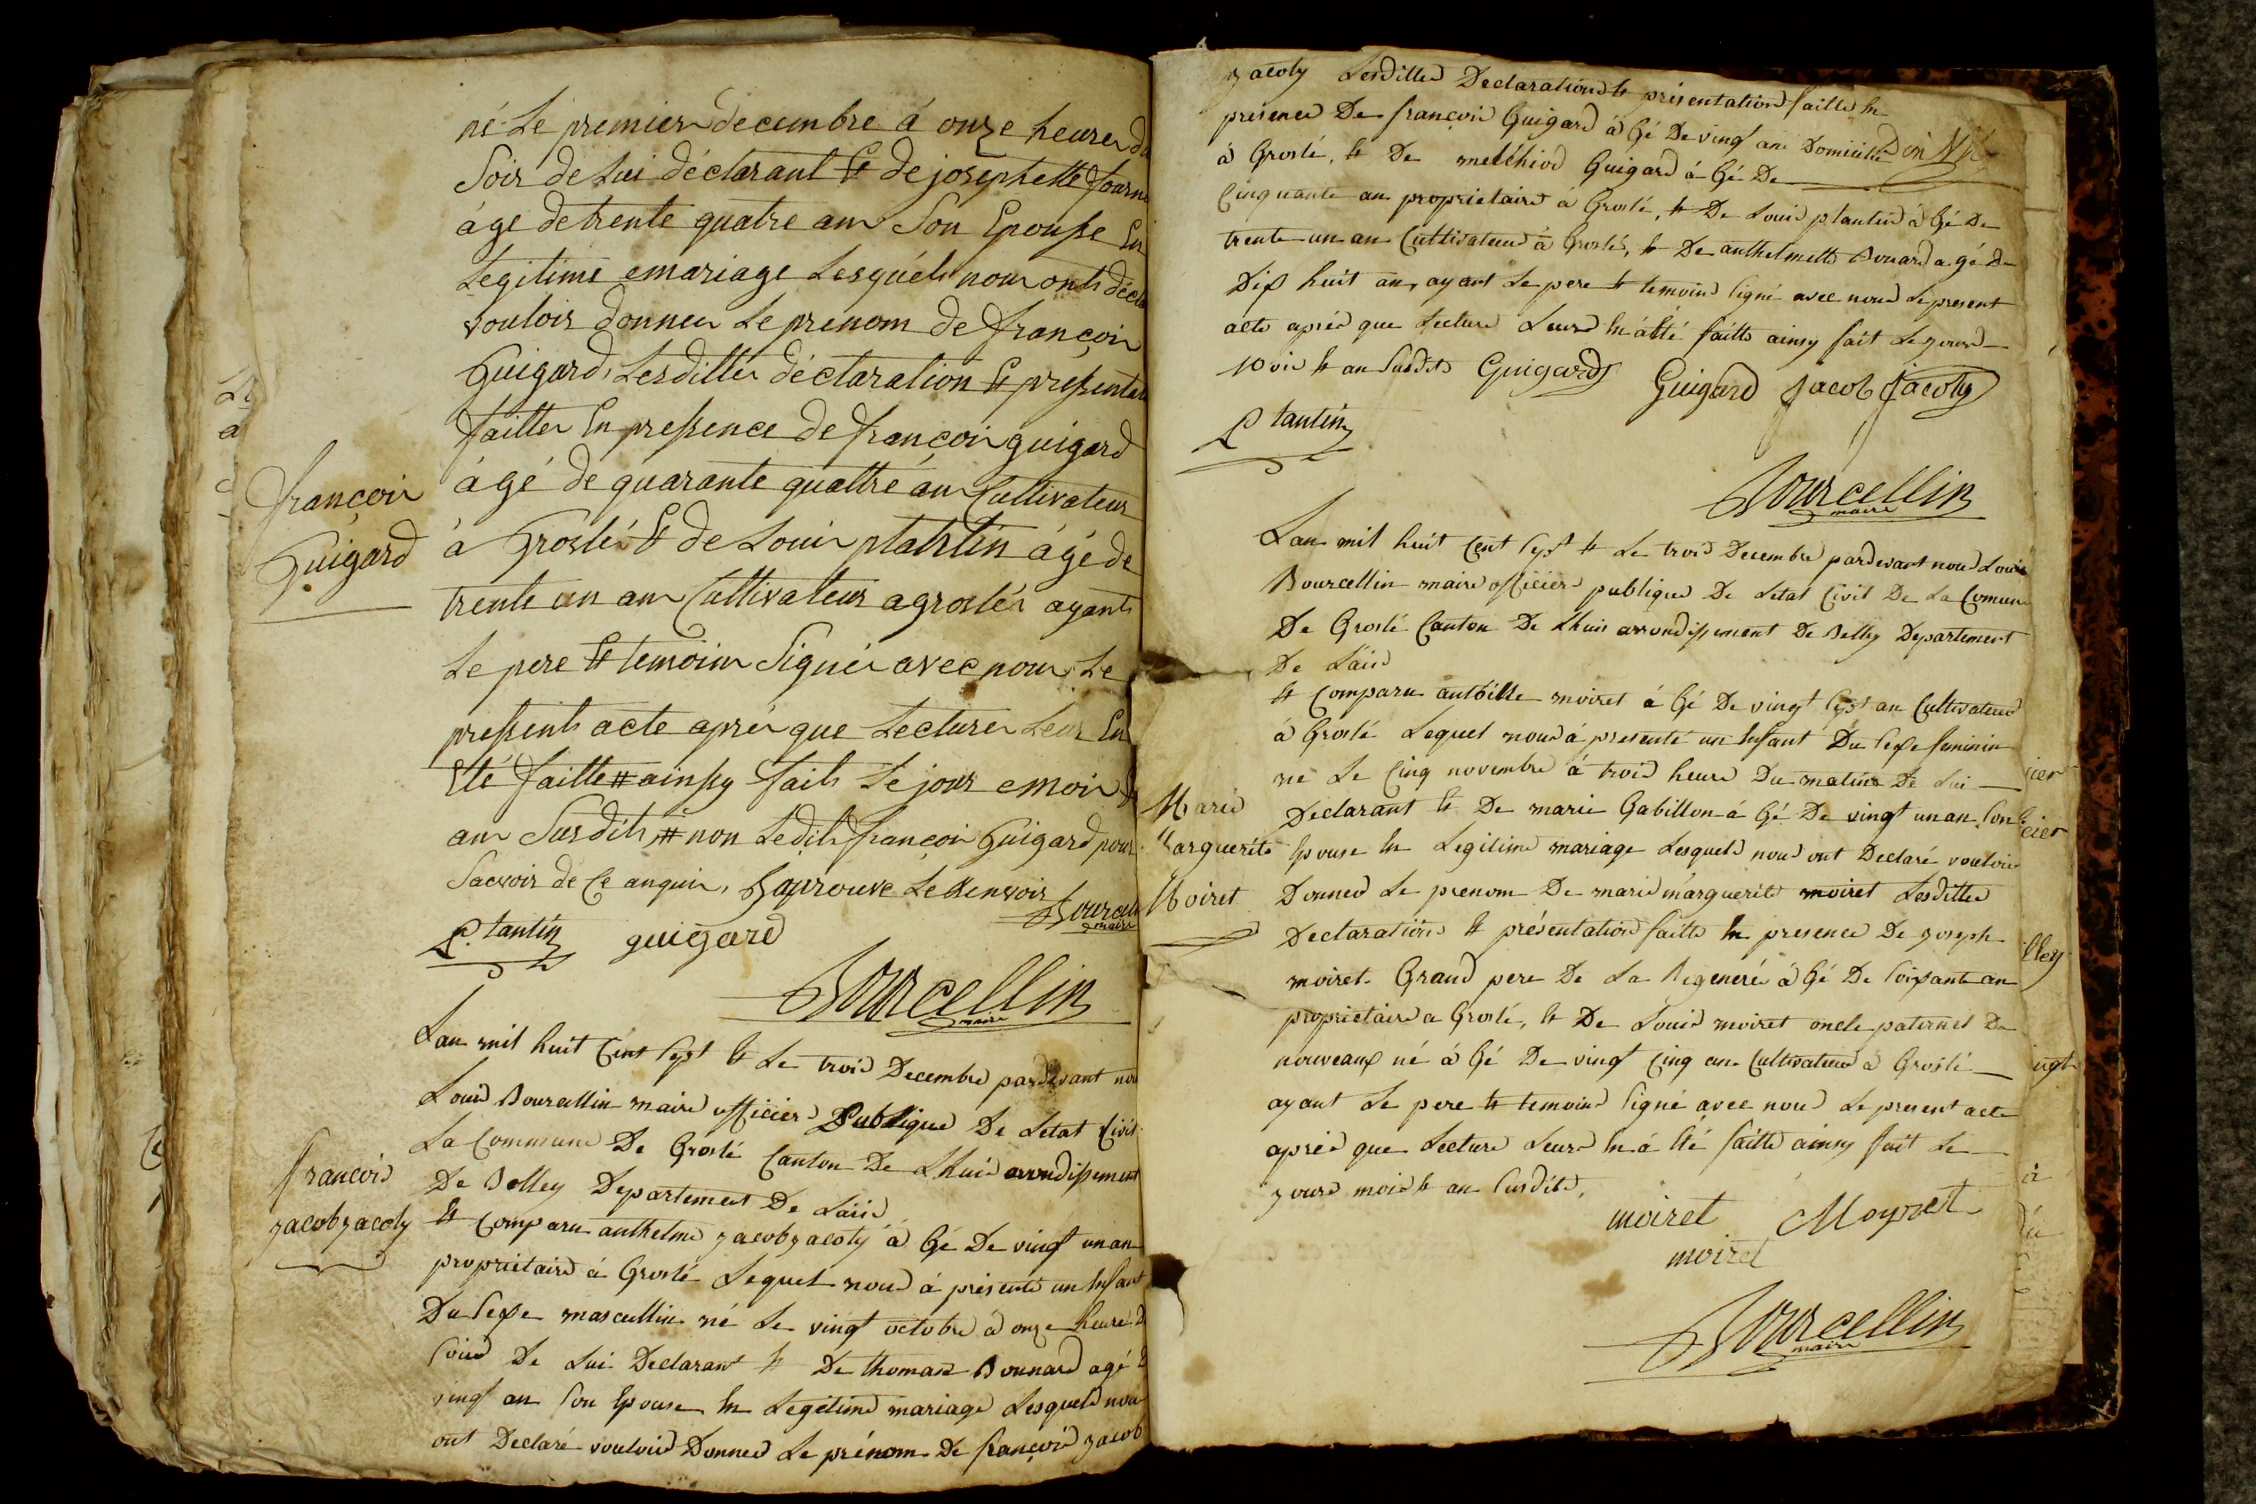 né Le premier decembre á onze heures du
Soir de Lui déclarant Et de josephette fourni
áge de trente quatre ans Son Epousse En
Legitime emariage Lesquels nous onts décla
vouloir donner Le prenom de françois
Guigard, Lesdittes déclaration Et pressentati
faittes En pressence de françois guigard
ágé de quarante quattre áns Cultivateur
á Groslé Et de Louis plantin ágé de
trente un ans Cultivateur a groslés ayants
Le pere Et temoins Signés avec nous Le
pressents acte aprés que Lectures Leur En
Eté faitte # ainssy faits Le jour emois Et
an Sus dits # non Ledits françois Guigard pour
Sacvoir de Ce anquis, Aprouve Le Renvoir
Bourcellin
maire
P. tantin guigard
Bourcellin
maire
françois
Guigard
Lan mil huit Cent Sept Et Le trois Decembre pardevant nou
Louis Bourcellin maire officier Publique De Letat Civil
La Commune De Groslé Canton De Lhuis arrondissement
De Belley Departement De Lain
Et Comparu anthelme jacob jacoty á Gé De vingt un an
propriétaire á Groslé Lequel nous á présenté un Enfant
Du Sexe mascullin né Le vingt octobre á onze heure D
Soire De Lui Declarant Et De thomase Bonnard agé D
vingt an Son Epouse En Legétime mariage Lesquels nou
ont Declaré vouloir Donner Le prénom De françois jacob
françois
jacob jacoty
jacoty Lesdittes Declarations Et présentations faittes En
presence De françois Guigard á Gé De vingt ans Domicilié
á Groslé, Et De melchiod Guigard á Gé De
Cinquante an propriétaire á Groslé, Et De Louis plantin á Gé De
trente un an Cultivateur á Groslé, Et De anthelmette Bonard agé De
Dix huit an, ayant Le pere Et temoins Signé avec nous Le present
acte aprés que Lecture Leurs En á Eté faitte ainsy fait Le jours
mois Et an Susdits Guigard Guigard jacob jacoty
P tantin
Bourcellin
maire
Lan mil huit Cent Sept Et Le trois Decembre pardevant nous Louis
Bourcellin maire officier publique De Letat Civil De La Comune
De Groslé Canton De Lhuis arrondissement De Belley Departement
De Lain
Et Comparu moiret á Gé De vingt Sept an Cultivateur
á Groslé Lequel nous á presenté un Enfant Du Sexe feminin
né Le Cinq novembre á trois heure Du matin De Lui
Declarant Et De marie Gabillon á Gé De vingt un an Son
Epouse En Legitime mariage Lesquels nous ont Declaré vouloir
Donner Le prenom De marie marguerite moiret Lesdittes
Declarations Et présentation faitte En presence De joseph
moiret Grand pere De La Regeneré á Gé De Soixante an
propriétaire a Groslé, Et De Louis moiret oncle paternel De
nouveaux né á Gé De vingt Cinq an Cultivateur á Groslé
ayant Le pere Et temoins Signé avec nous Le present acte
aprés que Lecture Leurs En á Eté faitte ainsy fait Le
jours mois Et an Susdits,
moiret Moyret
moiret
Bourcellin
maire
Marie
Marguerite
Moiret